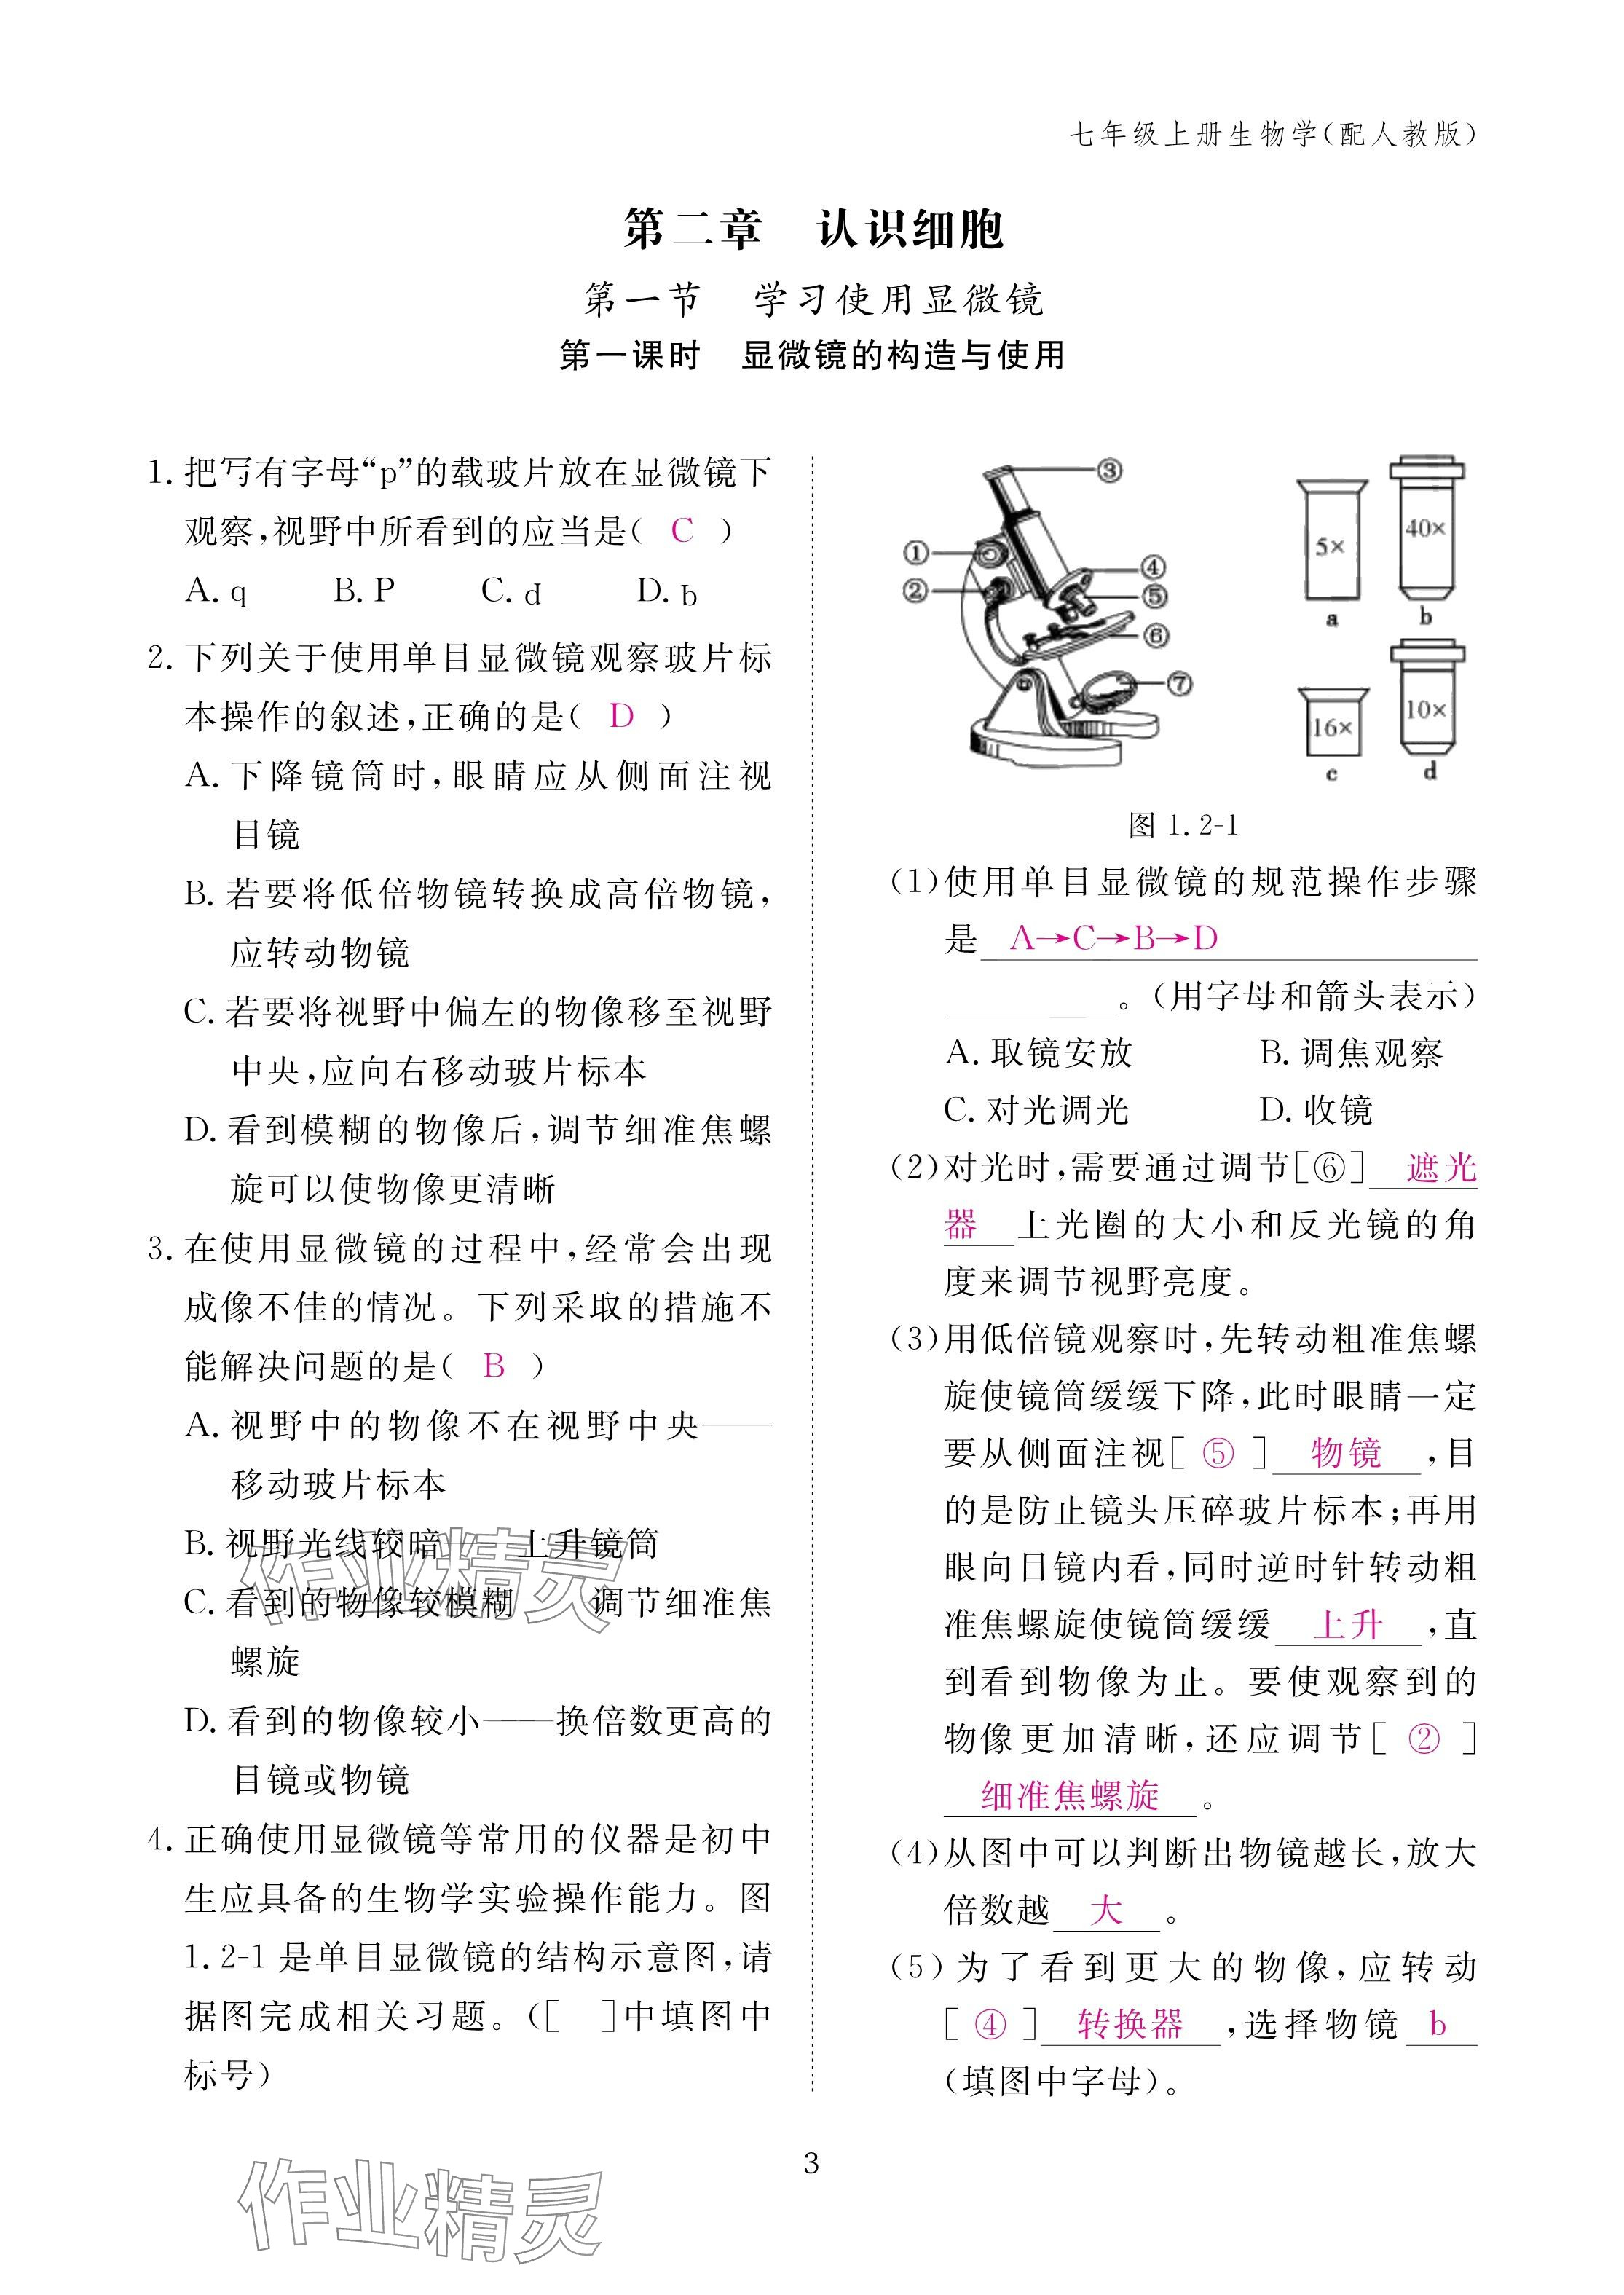 七年级上册生物学(配人教版)
第二章 认识细胞
第一节 学习使用显微镜
第一课时 显微镜的构造与使用
1. 把写有字母“p”的载玻片放在显微镜下
观察,视野中所看到的应当是( C )
A. q B. P C. d D. b
2. 下列关于使用单目显微镜观察玻片标
本操作的叙述,正确的是( D )
A. 下降镜筒时,眼睛应从侧面注视
目镜
B. 若要将低倍物镜转换成高倍物镜,
应转动物镜
C. 若要将视野中偏左的物像移至视野
中央,应向右移动玻片标本
D. 看到模糊的物像后,调节细准焦螺
旋可以使物像更清晰
3. 在使用显微镜的过程中,经常会出现
成像不佳的情况。下列采取的措施不
能解决问题的是( B )
A. 视野中的物像不在视野中央——
移动玻片标本
B. 视野光线较暗——上升镜筒
C. 看到的物像较模糊——调节细准焦
螺旋
D. 看到的物像较小——换倍数更高的
目镜或物镜
4. 正确使用显微镜等常用的仪器是初中
生应具备的生物学实验操作能力。图
1.2-1 是单目显微镜的结构示意图,请
据图完成相关习题。([ ]中填图中
标号)
① ② ③ ④ ⑤ ⑥ ⑦
5× 40×
a b
16× 10×
c d
图 1.2-1
(1)使用单目显微镜的规范操作步骤
是 A→C→B→D
。(用字母和箭头表示)
A. 取镜安放 B. 调焦观察
C. 对光调光 D. 收镜
(2)对光时,需要通过调节[⑥] 遮光
器 上光圈的大小和反光镜的角
度来调节视野亮度。
(3)用低倍镜观察时,先转动粗准焦螺
旋使镜筒缓缓下降,此时眼睛一定
要从侧面注视[ ⑤ ] 物镜 ,目
的是防止镜头压碎玻片标本;再用
眼向目镜内看,同时逆时针转动粗
准焦螺旋使镜筒缓缓 上升 ,直
到看到物像为止。要使观察到的
物像更加清晰,还应调节[ ② ]
细准焦螺旋 。
(4)从图中可以判断出物镜越长,放大
倍数越 大 。
(5)为了看到更大的物像,应转动
[ ④ ] 转换器 ,选择物镜 b
(填图中字母)。
3
作业精灵
作业精灵